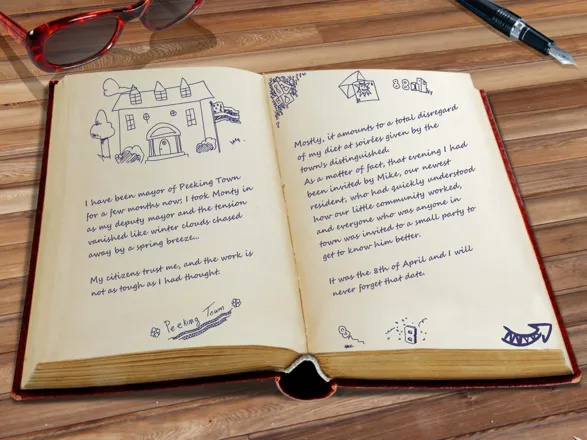 I have been mayor of Peeking Town
for a few months now; I took Monty in
as my deputy mayor and the tension
vanished like winter clouds chased
away by a spring breeze...
My citizens trust me, and the work is
not as tough as I had thought.
Peeking Town
Mostly, it amounts to a total disregard
of my diet at soirées given by the
town's distinguished.
As a matter of fact, that evening I had
been invited by Mike, our newest
resident, who had quickly understood
how our little community worked,
and everyone who was anyone in
town was invited to a small party to
get to know him better.
It was the 8th of April and I will
never forget that date.